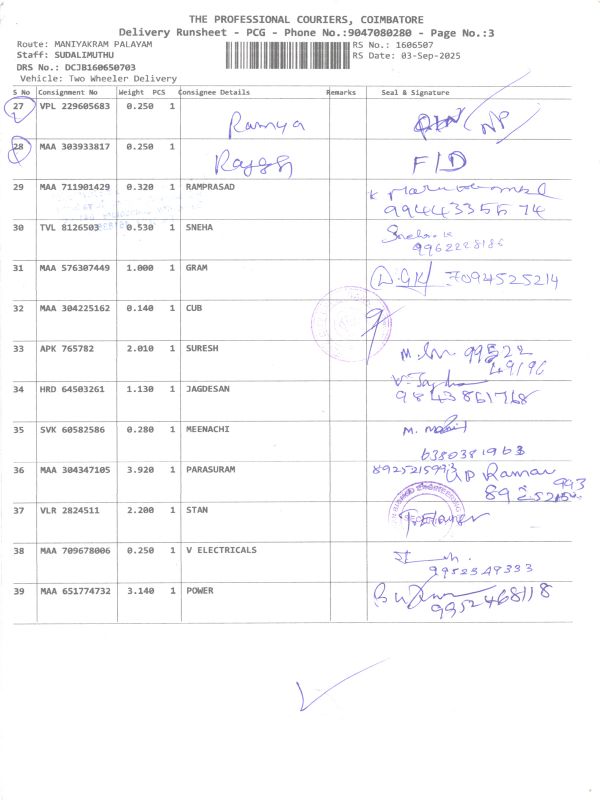 THE PROFESSIONAL COURIERS, COIMBATORE
Delivery Runsheet - PCG - Phone No.:9047080280 - Page No.:3
Route: MANIYAKRAM PALAYAM RS No.: 1606507
Staff: SUDALIMUTHU RS Date: 03-Sep-2025
DRS No.: DCJB160650703
Vehicle: Two Wheeler Delivery
S No Consignment No Weight PCS Consignee Details Remarks Seal & Signature
27 VPL 229605683 0.250 1 Ramya NP
28 MAA 303933817 0.250 1 F/D
29 MAA 711901429 0.320 1 RAMPRASAD
30 TVL 8126503 0.530 1 SNEHA
9962228186
31 MAA 576307449 1.000 1 GRAM 7094525214
32 MAA 304225162 0.140 1 CUB
33 APK 765782 2.010 1 SURESH 99522
49196
34 HRD 64503261 1.130 1 JAGDESAN 9843861768
35 SVK 60582586 0.280 1 MEENACHI M.
6380381963
36 MAA 304347105 3.920 1 PARASURAM 8925215993
37 VLR 2824511 2.200 1 STAN
38 MAA 709678006 0.250 1 V ELECTRICALS
9952549333
39 MAA 651774732 3.140 1 POWER
9952468118